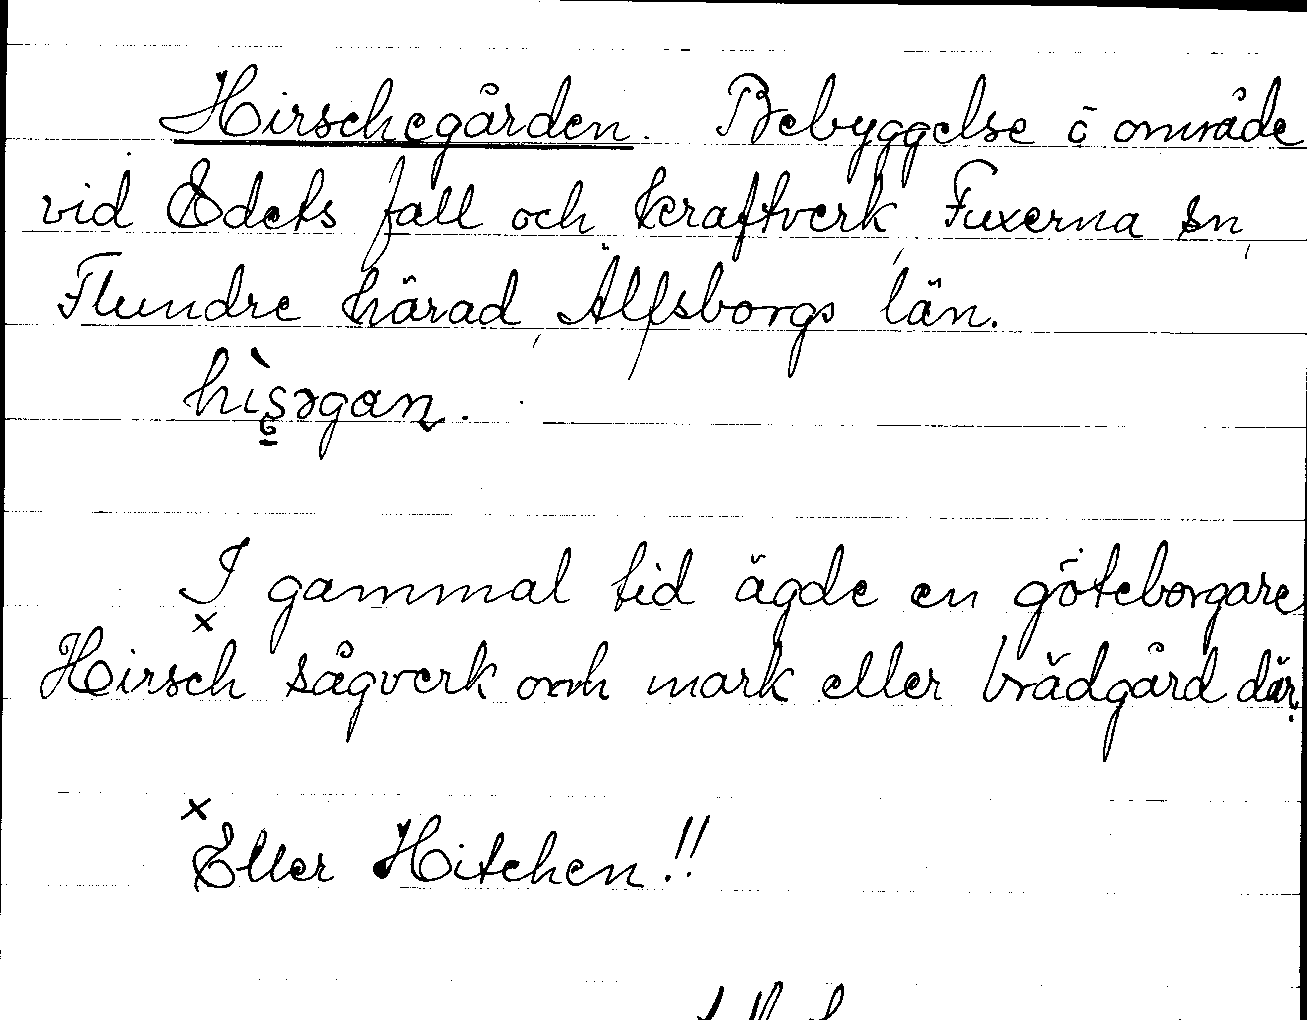 Hirschegården. Bebyggelse i område
vid Edets fall och kraftverk, Fuxerna sn,
Flundre härad, Älfsborgs län.
hìs̱əgan.
I gammal tid ägde en göteborgare
x
Hirsch sågverk och mark eller brädgård där.
x
Eller Hitchen!!